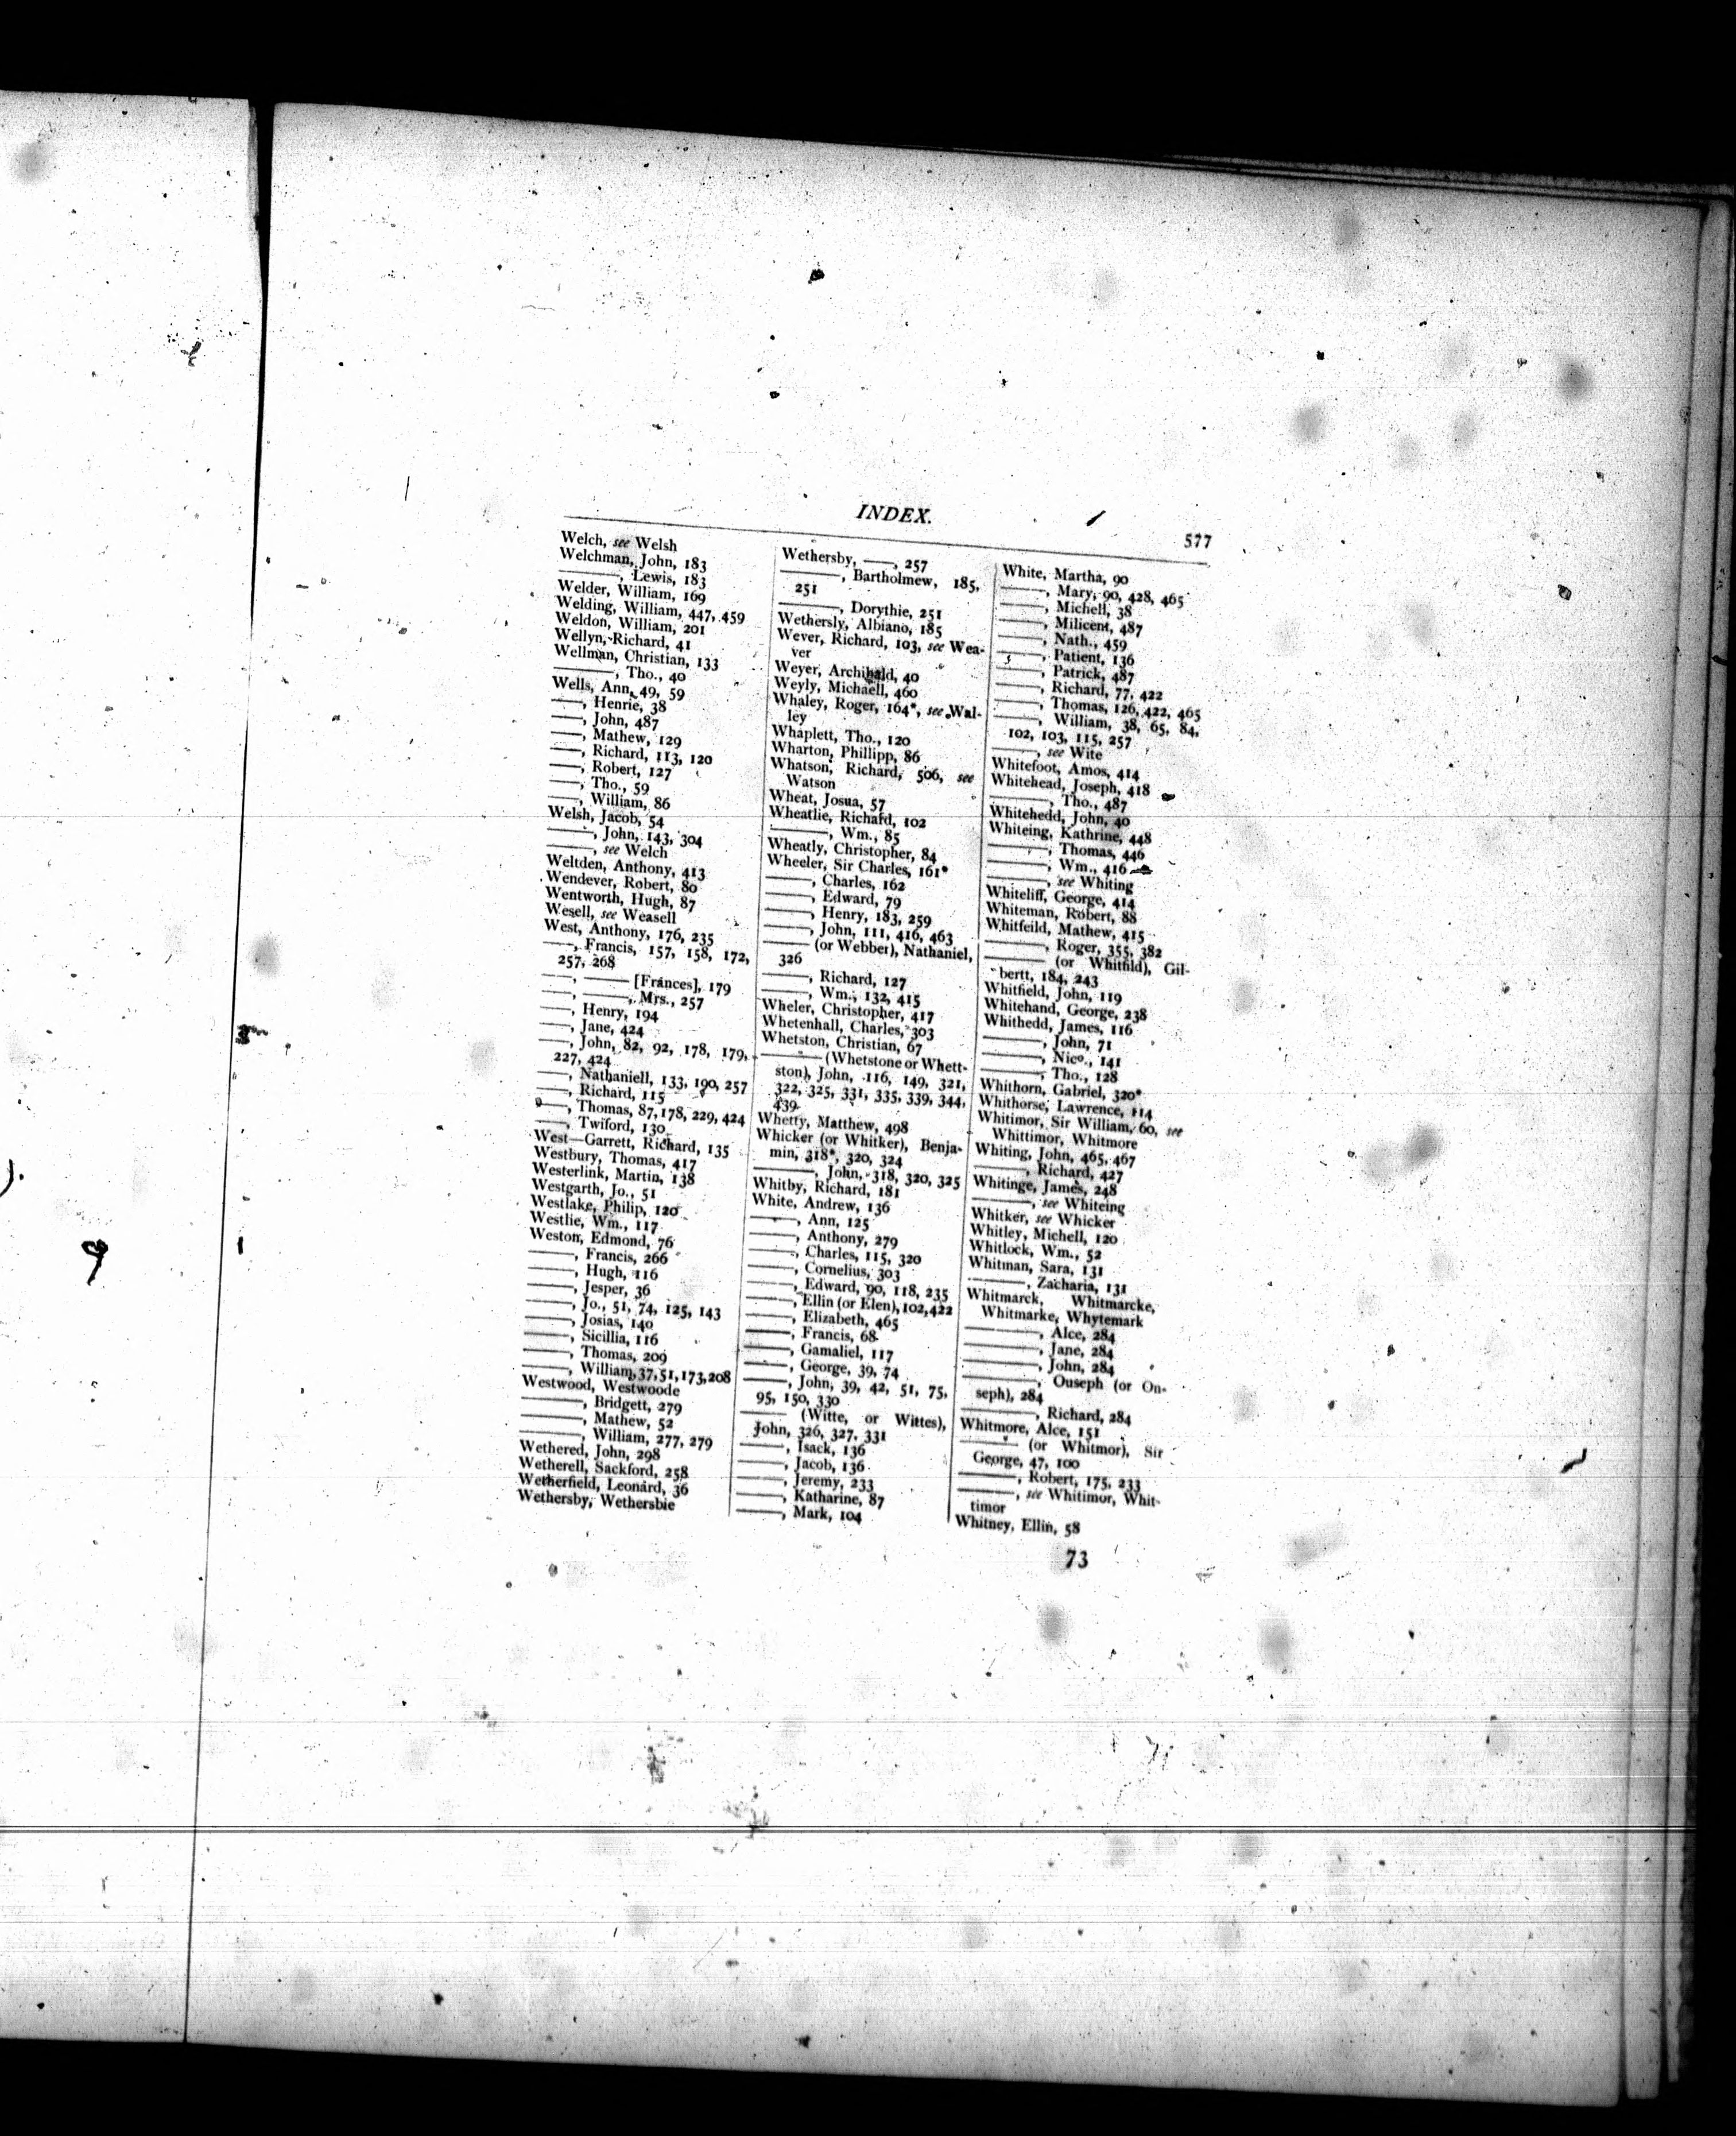 INDEX.
577
Welch, see Welsh
Welchman, John, 183
———, Lewis, 183
Welder, William, 169
Welding, William, 447, 459
Weldon, William, 201
Wellyn, Richard, 41
Wellman, Christian, 133
———, Tho., 40
Wells, Ann, 49, 59
———, Henrie, 38
———, John, 487
———, Mathew, 129
———, Richard, 113, 120
———, Robert, 127
———, Tho., 59
———, William, 86
Welsh, Jacob, 54
———, John, 143, 304
———, see Welch
Weltden, Anthony, 413
Wendever, Robert, 80
Wentworth, Hugh, 87
Wesell, see Weasell
West, Anthony, 176, 235
———, Francis, 157, 158, 172,
257, 268
———, ——— [Frances], 179
———, ———, Mrs., 257
———, Henry, 194
———, Jane, 424
———, John, 82, 92, 178, 179,
227, 424
———, Nathaniell, 133, 190, 257
———, Richard, 115
———, Thomas, 87, 178, 229, 424
———, Twiford, 130
West—Garrett, Richard, 135
Westbury, Thomas, 417
Westerlink, Martin, 138
Westgarth, Jo., 51
Westlake, Philip, 120
Westlie, Wm., 117
Weston, Edmond, 76
———, Francis, 266
———, Hugh, 116
———, Jesper, 36
———, Jo., 51, 74, 125, 143
———, Josias, 140
———, Sicillia, 116
———, Thomas, 209
———, William, 37, 51, 173, 208
Westwood, Westwoode
———, Bridgett, 279
———, Mathew, 52
———, William, 277, 279
Wethered, John, 298
Wetherell, Sackford, 258
Wetherfield, Leonard, 36
Wethersby, Wethersbie
Wethersby, ———, 257
———, Bartholmew, 185,
251
———, Dorythie, 251
Wethersly, Albiano, 185
Wever, Richard, 103, see Wea-
ver
Weyer, Archibald, 40
Weyly, Michaell, 460
Whaley, Roger, 164*, see Wal-
ley
Whaplett, Tho., 120
Wharton, Phillipp, 86
Whatson, Richard, 506, see
Watson
Wheat, Josua, 57
Wheatlie, Richard, 102
———, Wm., 85
Wheatly, Christopher, 84
Wheeler, Sir Charles, 161*
———, Charles, 162
———, Edward, 79
———, Henry, 183, 259
———, John, 111, 416, 463
——— (or Webber), Nathaniel,
326
———, Richard, 127
———, Wm., 132, 415
Wheler, Christopher, 417
Whetenhall, Charles, 303
Whetston, Christian, 67
——— (Whetstone or Whett-
ston), John, 116, 149, 321,
322, 325, 331, 335, 339, 344,
439
Whetty, Matthew, 498
Whicker (or Whitker), Benja-
min, 318*, 320, 324
———, John, 318, 320, 325
Whitby, Richard, 181
White, Andrew, 136
———, Ann, 125
———, Anthony, 279
———, Charles, 115, 320
———, Cornelius, 303
———, Edward, 90, 118, 235
———, Ellin (or Elen), 102, 422
———, Elizabeth, 465
———, Francis, 68
———, Gamaliel, 117
———, George, 39, 74
———, John, 39, 42, 51, 75,
95, 150, 330
——— (Witte, or Wittes),
John, 326, 327, 331
———, Isack, 136
———, Jacob, 136
———, Jeremy, 233
———, Katharine, 87
———, Mark, 104
White, Martha, 90
———, Mary, 90, 428, 465
———, Michell, 38
———, Milicent, 487
———, Nath., 459
———, Patient, 136
———, Patrick, 487
———, Richard, 77, 422
———, Thomas, 126, 422, 465
———, William, 38, 65, 84,
102, 103, 115, 257
———, see Wite
Whitefoot, Amos, 414
Whitehead, Joseph, 418
———, Tho., 487
Whitehedd, John, 40
Whiteing, Kathrine, 448
———, Thomas, 446
———, Wm., 416
———, see Whiting
Whiteliff, George, 414
Whiteman, Robert, 88
Whitfeild, Mathew, 415
———, Roger, 355, 382
——— (or Whitfild), Gil-
bertt, 184, 243
Whitfield, John, 119
Whitehand, George, 238
Whithedd, James, 116
———, John, 71
———, Nico., 141
———, Tho., 128
Whithorn, Gabriel, 320*
Whithorse, Lawrence, 114
Whitimor, Sir William, 60, see
Whittimor, Whitmore
Whiting, John, 465, 467
———, Richard, 427
Whitinge, James, 248
———, see Whiteing
Whitker, see Whicker
Whitley, Michell, 120
Whitlock, Wm., 52
Whitman, Sara, 131
———, Zacharia, 131
Whitmarck, Whitmarcke,
Whitmarke, Whytemark
———, Alce, 284
———, Jane, 284
———, John, 284
———, Ouseph (or On-
seph), 284
———, Richard, 284
Whitmore, Alce, 151
——— (or Whitmor), Sir
George, 47, 100
———, Robert, 175, 233
———, see Whitimor, Whit-
timor
Whitney, Ellin, 58
73